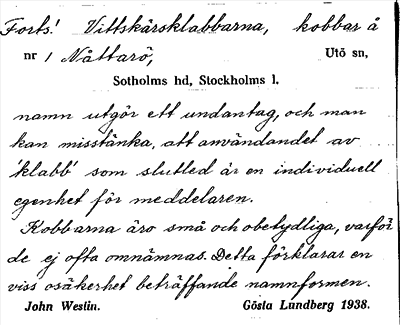 Forts! Vittskärsklabbarna, kobbar å
nr 1 Nåttarö, Utö sn,
Sotholms hd, Stockholms l.
namn utgör ett undantag, och man
kan misstänka, att användandet av
'klabb' som slutled är en individuell
egenhet för meddelaren.
Kobbarna äro små och obetydliga, varför
de ej ofta omnämnas. Detta förklarar en
viss osäkerhet beträffande namnformen.
John Westin. Gösta Lundberg 1938.